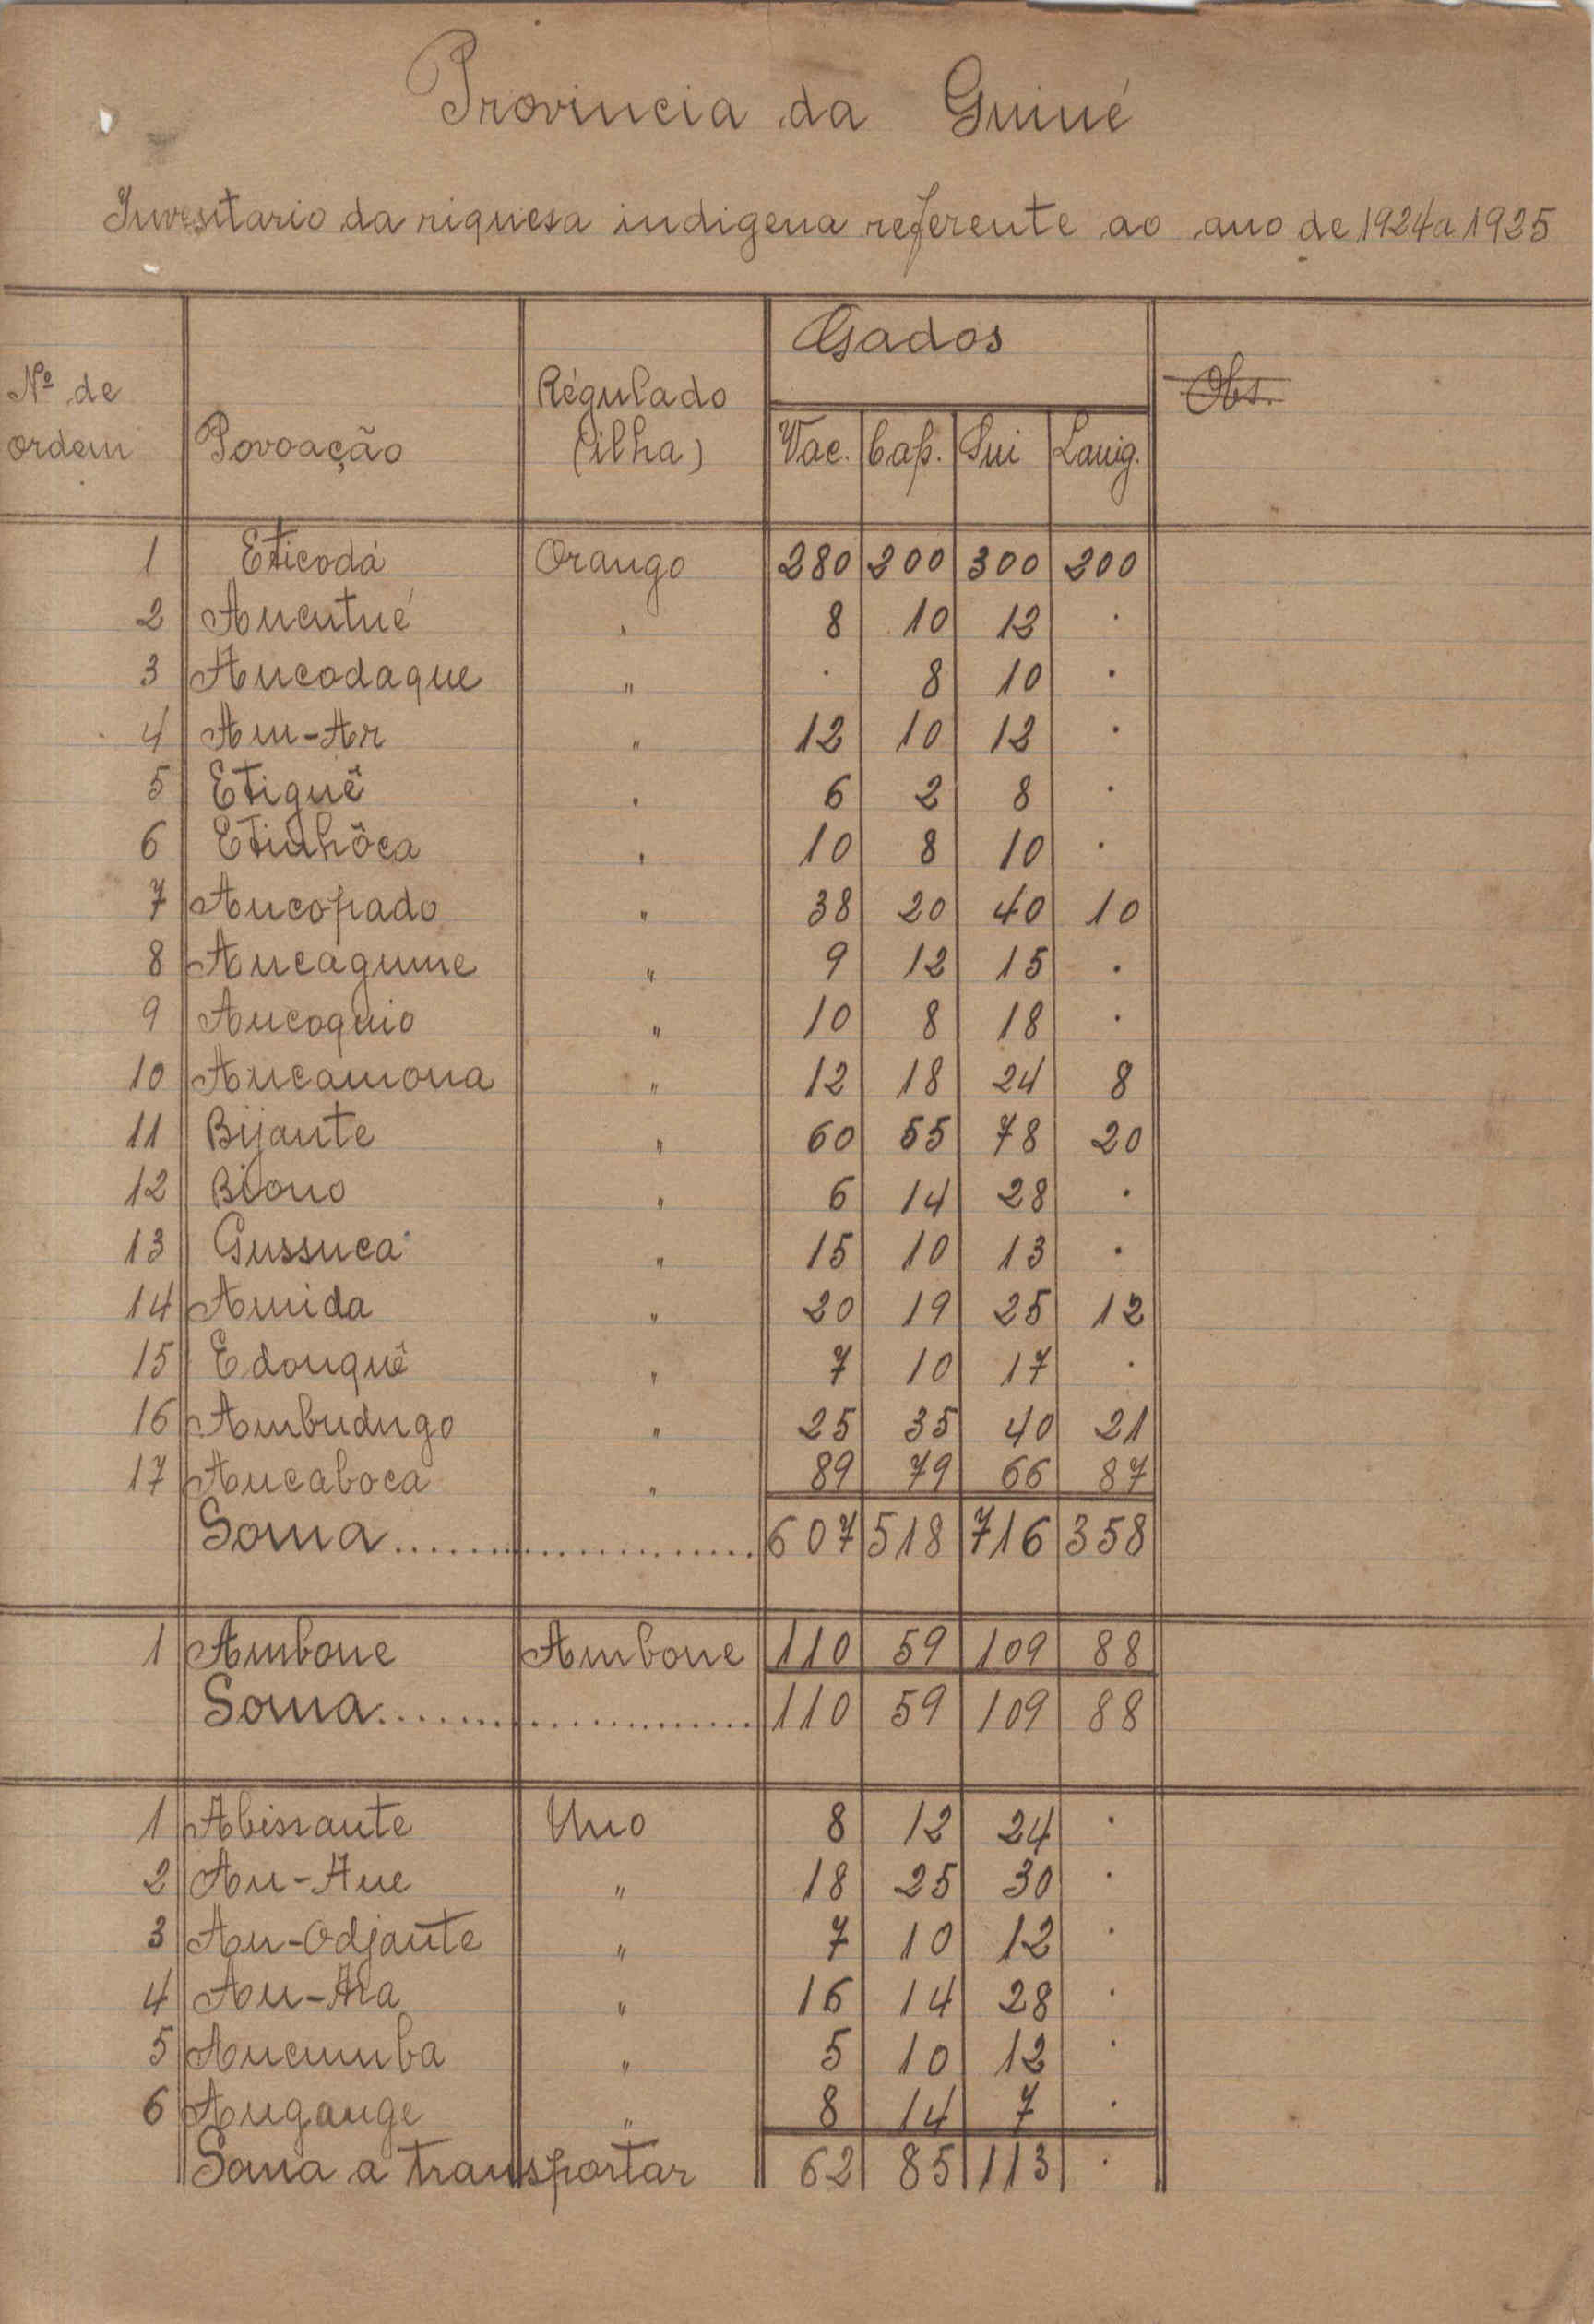 Provincia da Guiné
Inventario da riquesa indigena referente ao ano de 1924 a 1925
Nº de ordem Povoação Régulado (ilha) Gados Obs.
Vac. Cap. Sui Lanig.
1 Eticodá Orango 280 200 300 200
2 Ancutué " 8 10 12 .
3 Ancodaque " . 8 10 .
4 An-Ar " 12 10 12 .
5 Etiguê " 6 2 8 .
6 Etinhôca " 10 8 10 .
7 Ancopado " 38 20 40 10
8 Ancagume " 9 12 15 .
9 Ancoquio " 10 8 18 .
10 Ancamona " 12 18 24 8
11 Bijante " 60 55 78 20
12 Biono " 6 14 28 .
13 Gussuca " 15 10 13 .
14 Amida " 20 19 25 12
15 Edonquê " 7 10 17 .
16 Ambudugo " 25 35 40 21
17 Ancaboca " 89 79 66 87
Soma.................... 607 518 716 358
1 Ambone Ambone 110 59 109 88
Soma.................... 110 59 109 88
1 Abissante Uno 8 12 24 .
2 An-Aue " 18 25 30 .
3 An-Odjante " 7 10 12 .
4 An-Ara " 16 14 28 .
5 Ancumba " 5 10 12 .
6 Angange " 8 14 7 .
Soma a transportar 62 85 113 .